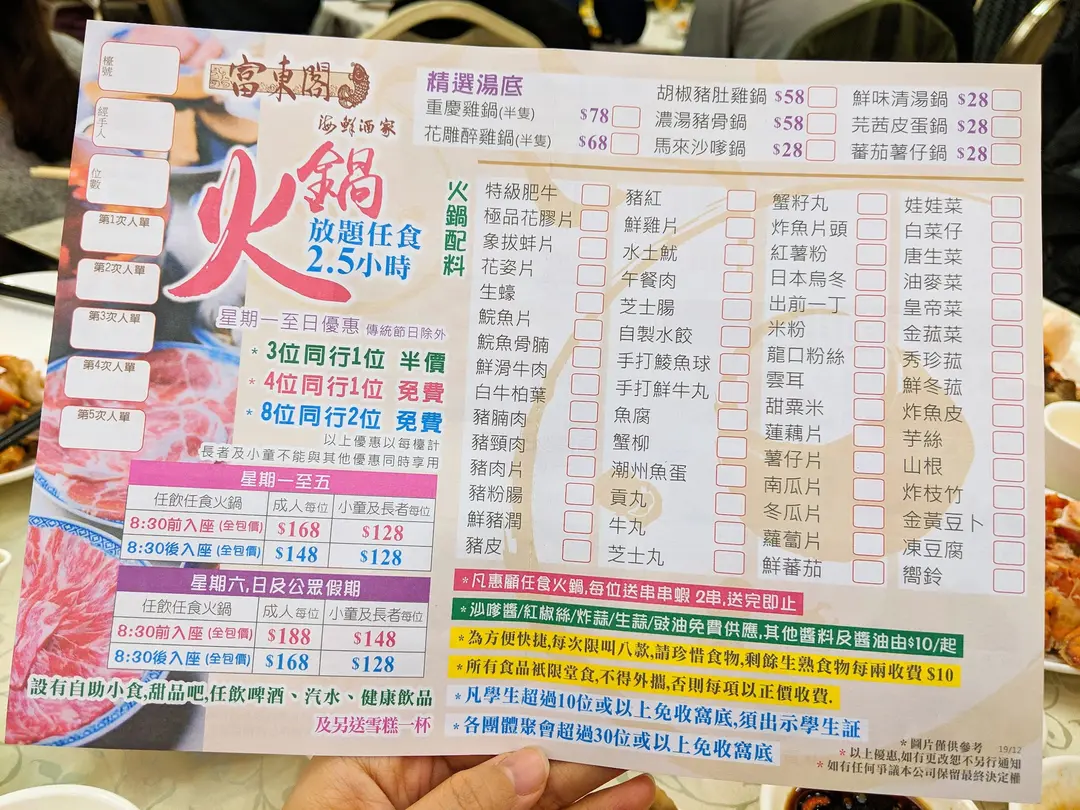 檯號
經手人
位數
第1次人單
第2次人單
第3次人單
第4次人單
第5次人單
富東閣
海鮮酒家
火鍋
放題任食
2.5小時
星期一至日優惠 傳統節日除外
* 3位同行1位 半價
* 4位同行1位 免費
* 8位同行2位 免費
以上優惠以每檯計
長者及小童不能與其他優惠同時享用
星期一至五
任飲任食火鍋 成人每位 小童及長者每位
8:30前入座 (全包價) $168 $128
8:30後入座 (全包價) $148 $128
星期六,日及公眾假期
任飲任食火鍋 成人每位 小童及長者每位
8:30前入座 (全包價) $188 $148
8:30後入座 (全包價) $168 $128
設有自助小食,甜品吧,任飲啤酒、汽水、健康飲品
及另送雪糕一杯
精選湯底
重慶雞鍋(半隻) $78
花雕醉雞鍋(半隻) $68
胡椒豬肚雞鍋 $58
濃湯豬骨鍋 $58
馬來沙嗲鍋 $28
鮮味清湯鍋 $28
芫茜皮蛋鍋 $28
蕃茄薯仔鍋 $28
火鍋配料
特級肥牛
極品花膠片
象拔蚌片
花姿片
生蠔
鯇魚片
鯇魚骨腩
鮮滑牛肉
白牛柏葉
豬腩肉
豬頸肉
豬肉片
豬粉腸
鮮豬潤
豬皮
豬紅
鮮雞片
水土魷
午餐肉
芝士腸
自製水餃
手打鯪魚球
手打鮮牛丸
魚腐
蟹柳
潮州魚蛋
貢丸
牛丸
芝士丸
蟹籽丸
炸魚片頭
紅薯粉
日本烏冬
出前一丁
米粉
龍口粉絲
雲耳
甜粟米
蓮藕片
薯仔片
南瓜片
冬瓜片
蘿蔔片
鮮蕃茄
娃娃菜
白菜仔
唐生菜
油麥菜
皇帝菜
金菇菜
秀珍菇
鮮冬菰
炸魚皮
芋絲
山根
炸枝竹
金黃豆卜
凍豆腐
嚮鈴
*凡惠顧任食火鍋,每位送串串蝦 2串,送完即止
*沙嗲醬/紅椒絲/炸蒜/生蒜/豉油免費供應,其他醬料及醬油由$10/起
*為方便快捷,每次限叫八款,請珍惜食物,剩餘生熟食物每兩收費 $10
*所有食品衹限堂食,不得外攜,否則每項以正價收費.
*凡學生超過10位或以上免收窩底,須出示學生証
*各團體聚會超過30位或以上免收窩底
*圖片僅供參考 19/12
*以上優惠,如有更改恕不另行通知
*如有任何爭議本公司保留最終決定權